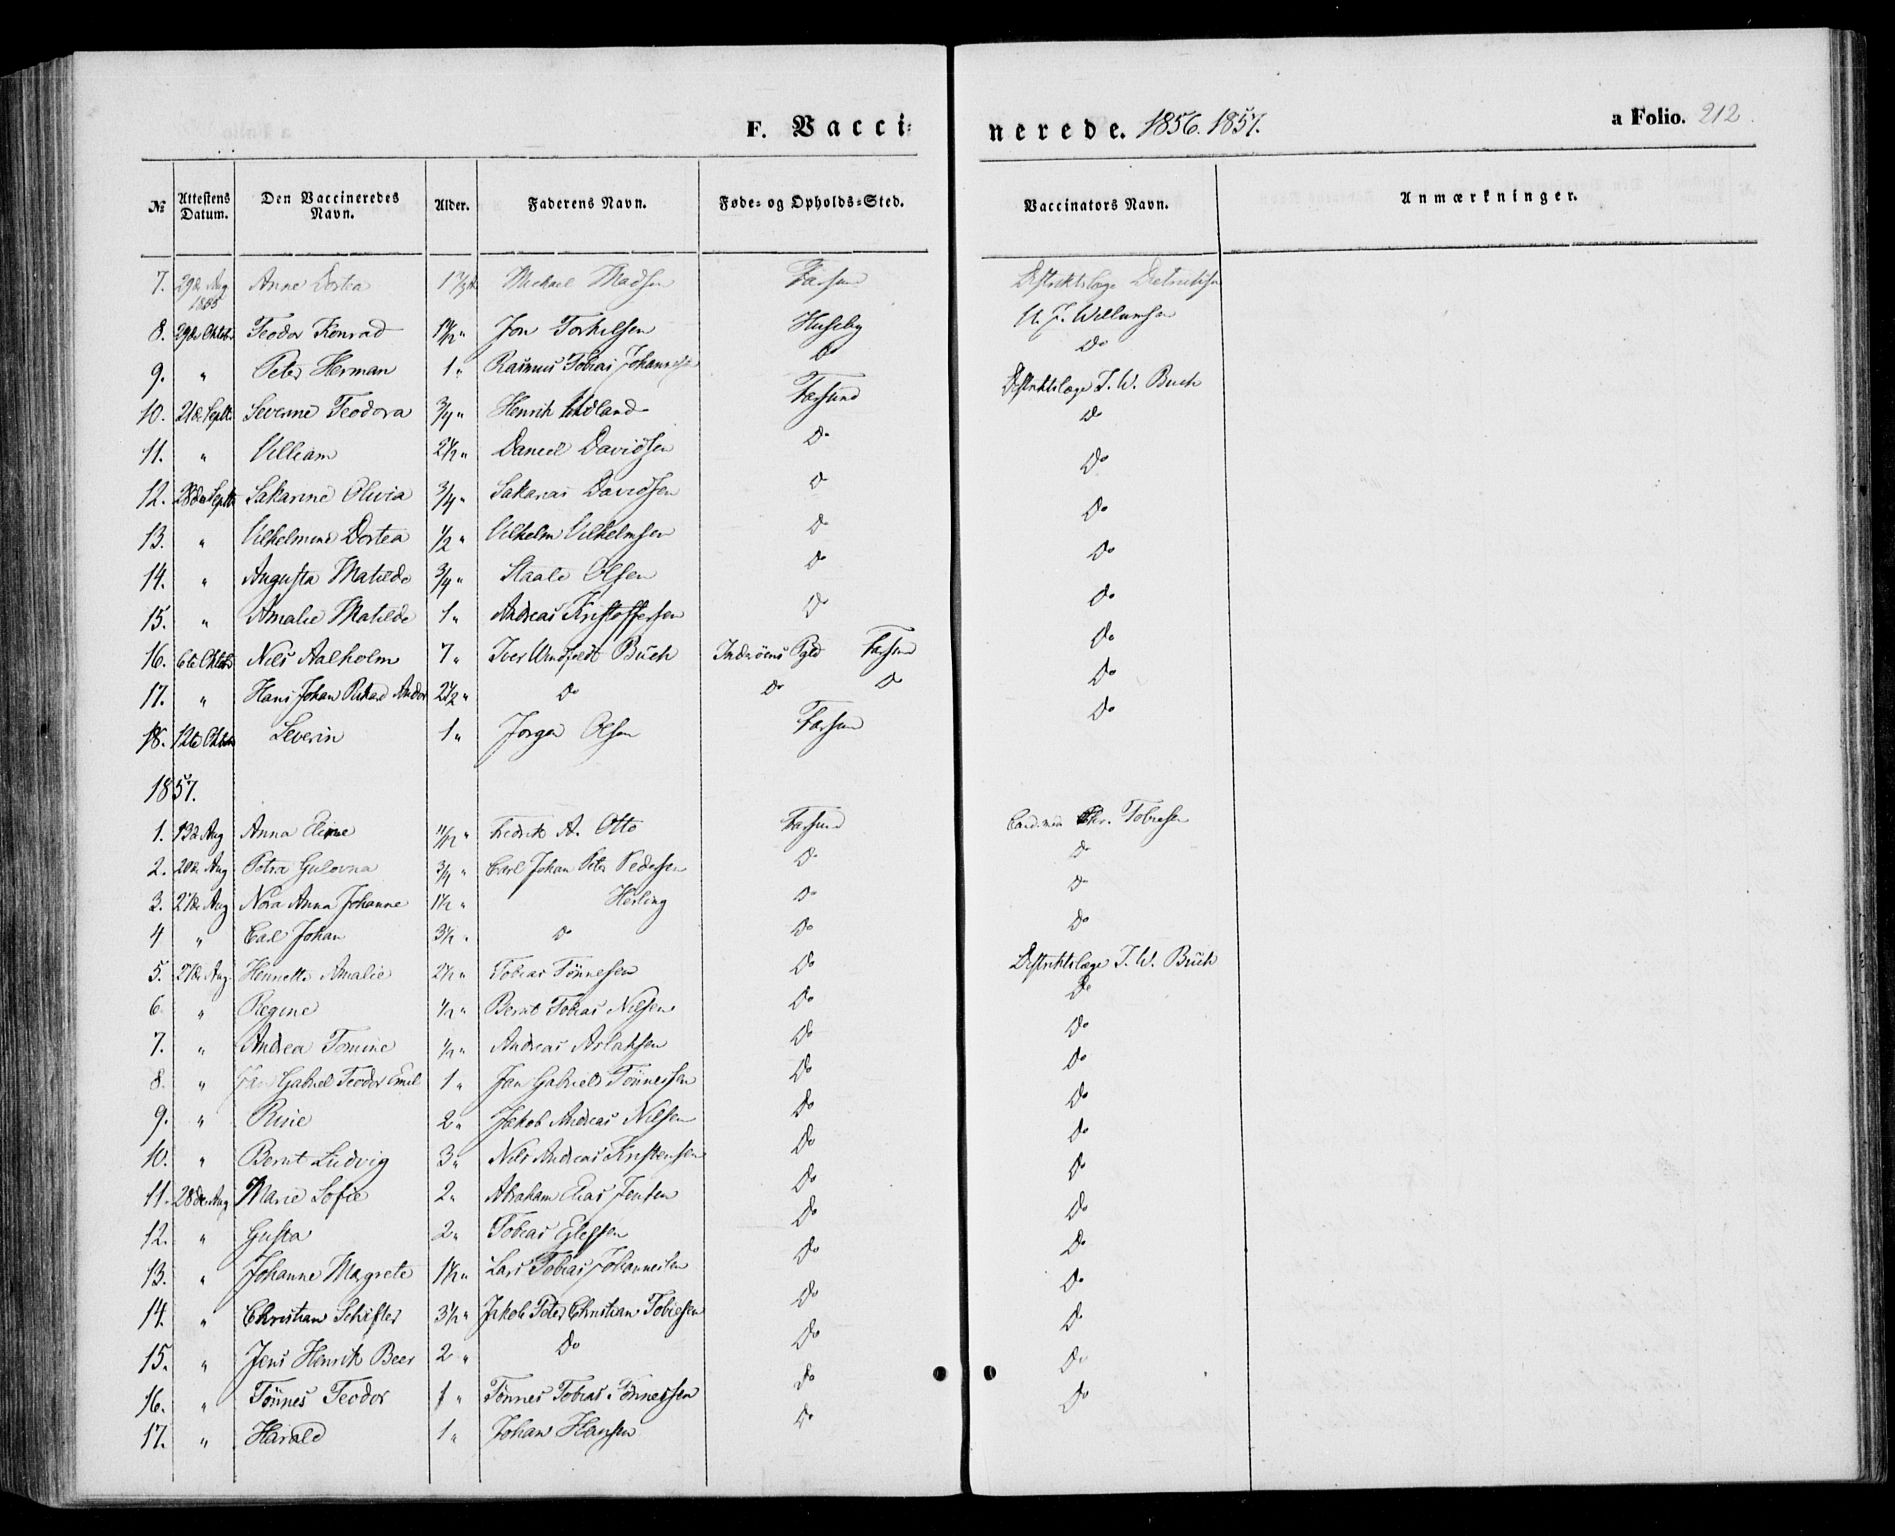 F. Vacci= nerede. 1856. 1857. a Folio. 212.
№ Attestens Datum. Den Vaccineredes Navn. Alder. Faderens Navn. Føde- og Opholds-Sted. Vaccinators Navn. Anmærkninger.
7. 29de Aug 1855 Anne Dortea Michael Madsen Farsund Distriktslæge
8. 29de Oktobr Teodor Konrad 1½ " Jon Torkelsen Huseby Willumsen
9. " Peter Herman 1 " Rasmus Tobias Johannesen Do Do
10. 21de Septb. Severine Teodora ¾ " Henrik Farsund Distriktslæge I. W. Buch
11. " Villiam 2½ " Daniel Davidsen Do Do
12. 28de Septb. Sakarine Olivia ¾ " Sakarias Davidsen Do Do
13. " Vilhelmine Dortea ½ " Vilhelm Vilhelmsen Do Do
14. " Augusta Matilde ¾ " Staale Olsen Do Do
15. " Amalie Matilde 1 " Andreas Kristoffersen Do Do
16. 6te Oktobr Nils Aalholm 7 " Iver Windfeldt Buch Inderøens Pgld Farsund Do
17. " Hans Johan Rikard Andor 2½ " Do Do Do Do
18. 12te Oktobr Severin 1 " Jørgen Olsen Farsund Do
1857.
1. 13de Aug Anna Eline 11/12 " Fredrik A. Otto Farsund Cand. med. Chr. Tobiesen
2. 20de Aug Petra Gulovna ¾ " Carl Johan Peter Pedersen Do Do
3. 27de Aug Nora Anna Johanne 1½ " Herling Do Do
4 " Carl Johan 3½ " Do Do Do
5. 27de Aug Henriette Amalie 2½ " Tobias Tønnesen Do Distriktslæge I. W. Buch
6. " Regine ½ " Bernt Tobias Nilsen Do Do
7. " Andrea Tomine ½ " Andreas Aslaksen Do Do
8. " Gabriel Teodor Emil 1 " Jan Gabriel Tønnessen Do Do
9. " Rine 2 " Jakob Andreas Nilsen Do Do
10. " Bernt Ludvig 3 " Nils Andreas Kristensen Do Do
11. 28de Aug Marie Sofie 2 " Abraham Elias Jensen Do Do
12. " Gusta 2 " Tobias Do Do
13. " Johanne Magrete 1½ " Lars Tobias Johannesen Do Do
14. " Christian Schifter 3½ " Jakob Peter Christian Tobiesen Do Do
15. " Jens Henrik Beer 2 " Do Do Do
16. " Tønnes Teodor 1 " Tønnes Tobias Tønnessen Do Do
17. " Harald 1 " Johan Hansen Do Do